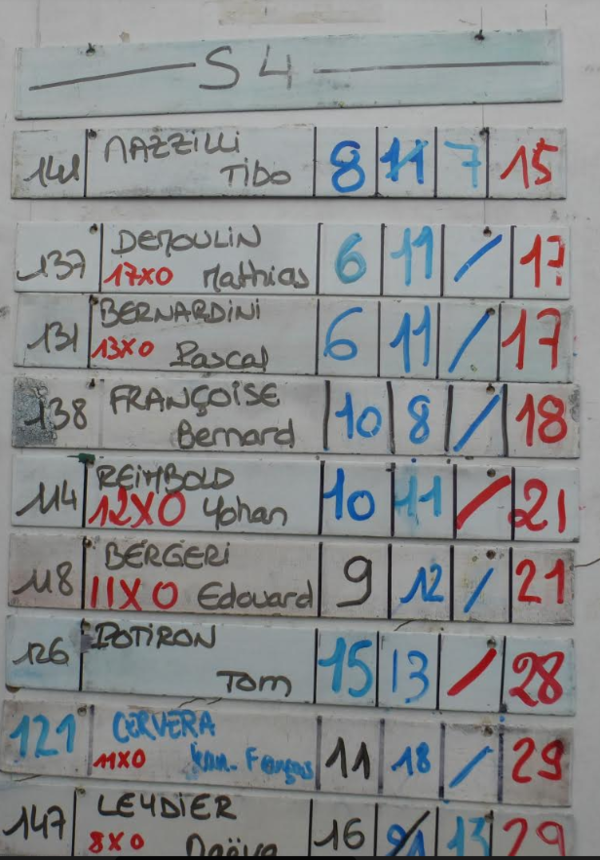 S4
141 MAZZILLI 8 11 7 15
Tibo
137 DEMOULIN 6 11 / 17
17X0 Matthias
131 BERNARDINI 6 11 / 17
13X0 Pascal
138 FRANÇOISE 10 8 / 18
Bernard
114 REIMBOLD 10 11 / 21
12X0 Yohan
118 BERGERI 9 12 / 21
11X0 Edouard
126 POTIRON 15 13 / 28
Tom
121 CERVERA 11 18 / 29
11X0 Jean-François
147 LEYDIER 16 13 29
8X0